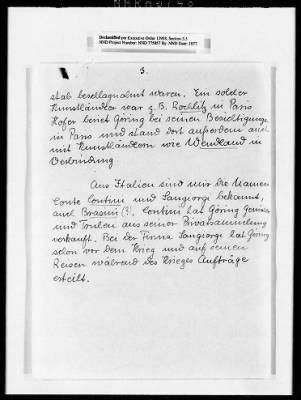 Declassified per Executive Order 12958, Section 3.5
NND Project Number: NND 775057 By: NND Date: 1977
3.
stab beschlagnahmt waren. Ein solcher
Kunsthändler war z.B. Rochlitz in Paris
Hofer beriet Göring bei seinen Besichtigungen
in Paris und stand dort außerdem auch
mit Kunsthändlern wie Wendland in
Verbindung
Aus Italien sind mir die Namen
Conte Contini und Sangiorgi bekannt,
auch Brasini (?). Contini hat Göring Gemälde
und Truhen aus seiner Privatsammlung
verkauft. Bei der Firma Sangiorgi hat Göring
schon vor dem Krieg und auf seinen
Reisen während des Krieges Aufträge
erteilt.